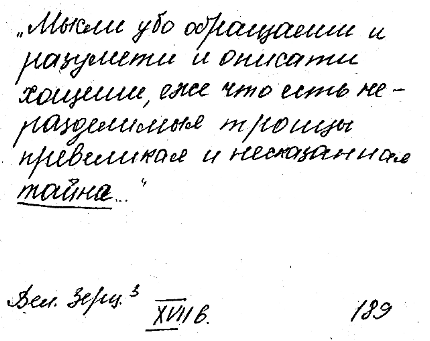 „Мысли убо обращаеши и
разумети и описати
хощеши, еже что есть не-
разделимыя троицы
превеликая и несказанная
тайна..."
Вел. Зерц.³
XVII в.
189